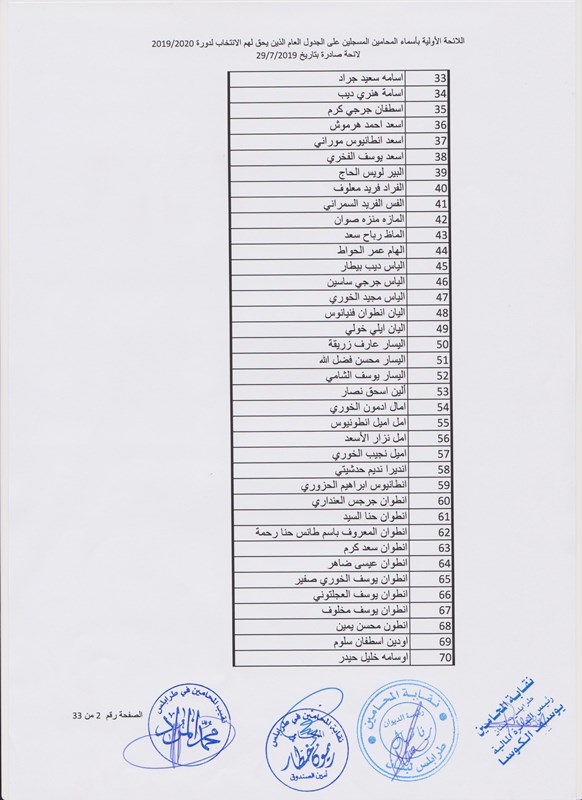 اللائحة الأولية بأسماء المحامين المسجلين على الجدول العام الذين يحق لهم الانتخاب لدورة 2019/2020
لائحة صادرة بتاريخ 29/7/2019
33 اسامه سعيد جراد
34 اسامة هنري ديب
35 اسطفان جرجي كرم
36 اسعد احمد هرموش
37 اسعد انطانيوس موراني
38 اسعد يوسف الفخري
39 البير لويس الحاج
40 الفراد فريد معلوف
41 الفس الفريد السمراني
42 المازه منزه صوان
43 الماظ رباح سعد
44 الهام عمر الحواط
45 الياس ديب بيطار
46 الياس جرجي ساسين
47 الياس مجيد الخوري
48 اليان انطوان فنيانوس
49 اليان ايلي خولي
50 اليسار عارف زريقة
51 اليسار محسن فضل الله
52 اليسار يوسف الشامي
53 ألين اسحق نصار
54 امال ادمون الخوري
55 امل اميل انطونيوس
56 امل نزار الأسعد
57 اميل نجيب الخوري
58 انديرا نديم حدشيتي
59 انطانيوس ابراهيم الحزوري
60 انطوان جرجس العنداري
61 انطوان حنا السيد
62 انطوان المعروف باسم طانس حنا رحمة
63 انطوان سعد كرم
64 انطوان عيسى ضاهر
65 انطوان يوسف الخوري صفير
66 انطوان يوسف العجلتوني
67 انطوان يوسف مخلوف
68 انطون محسن يمين
69 اودين اسطفان سلوم
70 اوسامه خليل حيدر
نقابة المحامين
طرابلس لبنان
يوسف الكوسا
نقابة المحامين
رئيسة الديوان
طرابلس لبنان
نقابة المحامين في طرابلس
ريمون خطار
أمين الصندوق
نقيب المحامين في طرابلس
محمد المراد
الصفحة رقم 2 من 33